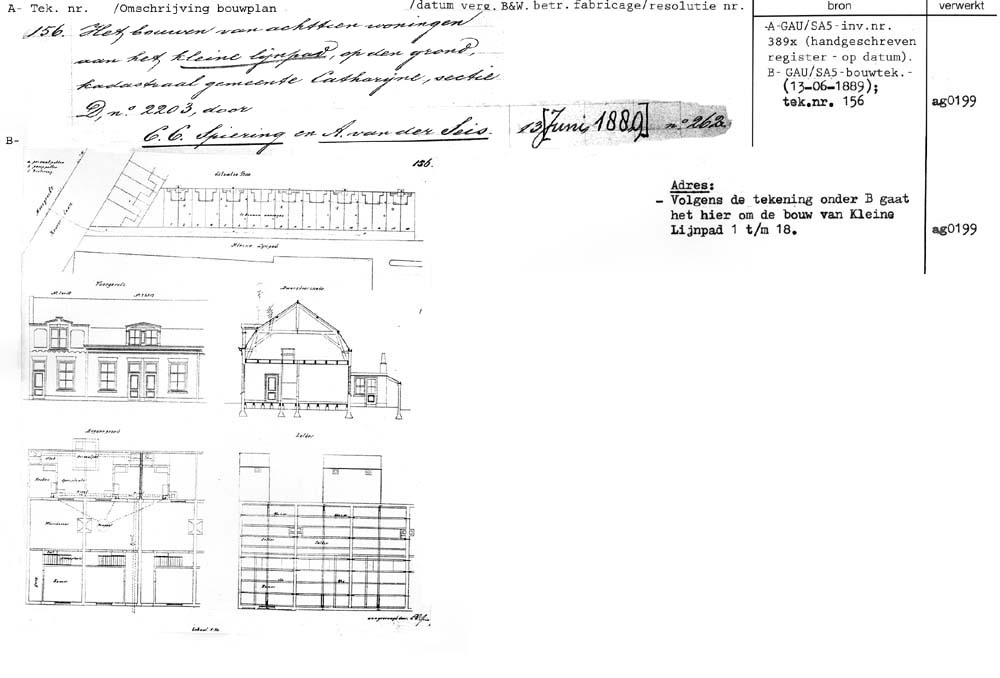 A- Tek. nr. /Omschrijving bouwplan /datum verg. B&W. betr. fabricage/resolutie nr. bron verwerkt
156. Het bouwen van achttien woningen
aan het kleine lijnpad, op den grond,
kadastraal gemeente Catharijne, sectie
D, no. 2203, door
C. C. Spiering en A. van der Seis.
13 [Juni 1889] no. 262
-A-GAU/SA5-inv.nr.
389x (handgeschreven
register - op datum).
B- GAU/SA5-bouwtek.-
(13-06-1889);
tek.nr. 156
ag0199
B-
156.
Situatie
Kleine Lijnpad
Adres:
- Volgens de tekening onder B gaat
het hier om de bouw van Kleine
Lijnpad 1 t/m 18.
ag0199
Voorgevel
Dwarsdoorsnede
Begane grond
Zolder
Keuken
Woonkamer
Kamer
Zolder
Zolder
Kamer
Schaal